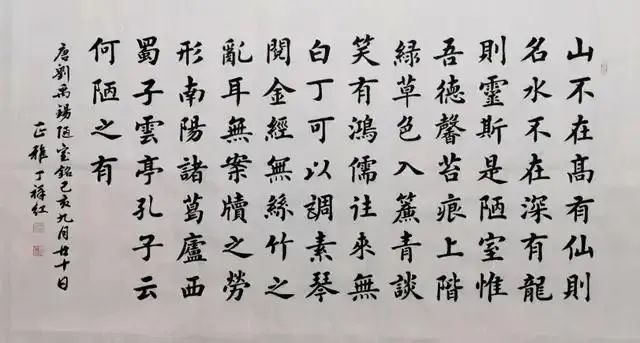 山不在高有仙則
名水不在深有龍
則靈斯是陋室惟
吾德馨苔痕上階
綠草色入簾青談
笑有鴻儒往來無
白丁可以調素琴
閱金經無絲竹之
亂耳無案牘之勞
形南陽諸葛廬西
蜀子雲亭孔子云
何陋之有
唐劉禹錫陋室銘己亥九月廿十日
正雅丁祥红